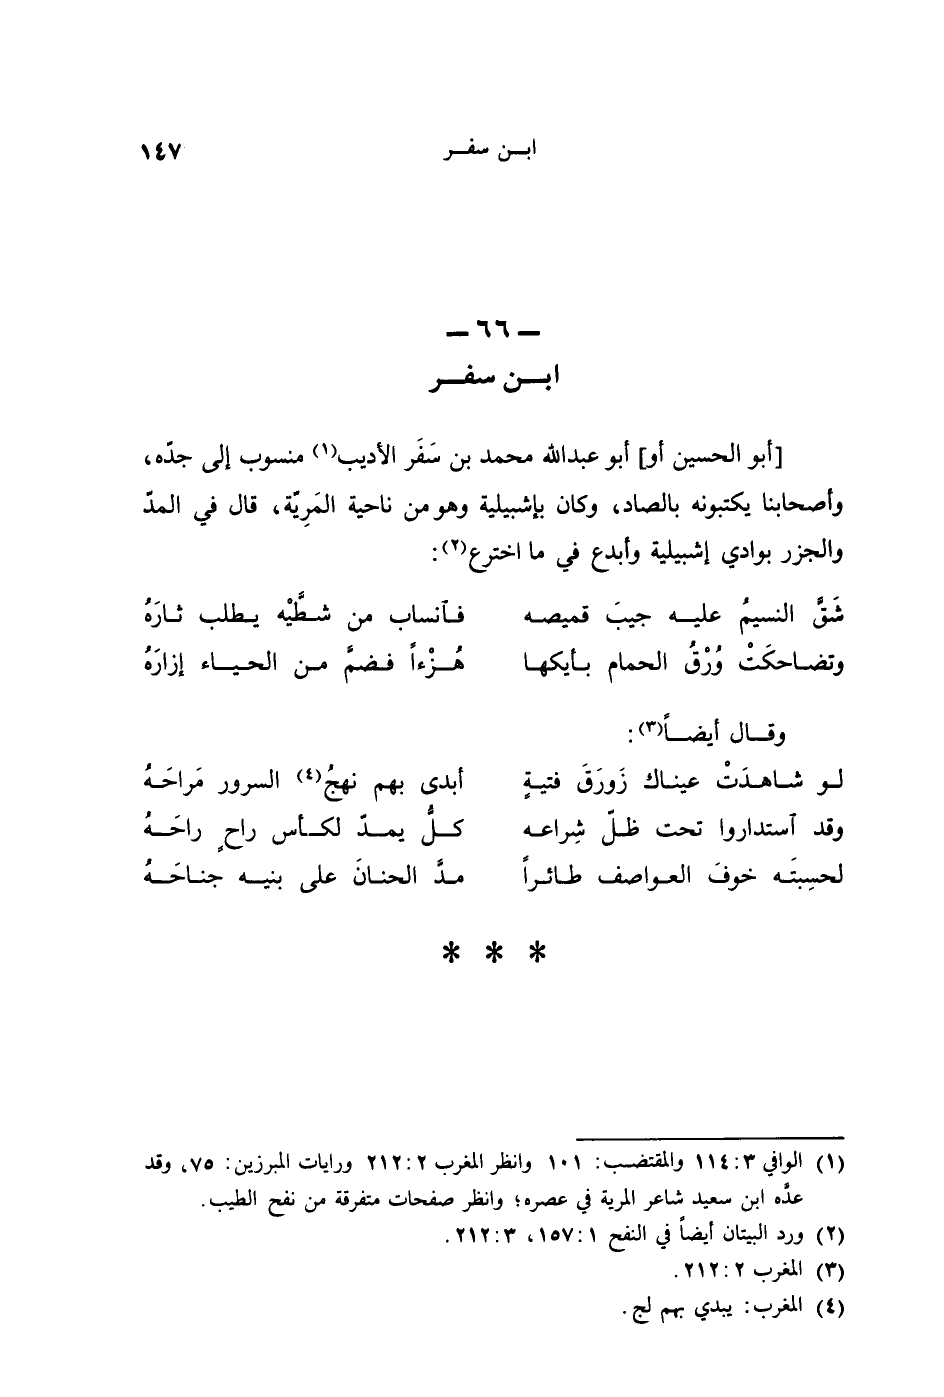 ابن سفر ١٤٧
— ٦٦ —
ابن سفر
[أبو الحسين أو] أبو عبدالله محمد بن سَفَر الأديب(١) منسوب إلى جدّه،
وأصحابنا يكتبونه بالصاد، وكان بإشبيلية وهو من ناحية المَرِيّة، قال في المدّ
والجزر بوادي إشبيلية وأبدع في ما اخترع(٢):
شَقَّ النسيمُ عليه جيبَ قميصه فٱنساب من شطَّيْه يطلب ثارَهُ
وتضاحكَتْ وُرْقُ الحمام بأيكها هُزْءاً فضمَّ من الحياء إزارَهُ
وقال أيضاً(٣):
لو شاهدَتْ عيناك زَورَقَ فتيةٍ أبدى بهم نهجُ(٤) السرور مَراحَهُ
وقد ٱستداروا تحت ظلّ شِراعه كلُّ يمدّ لكأس راحٍ راحَهُ
لحسِبتَه خوفَ العواصف طائراً مدَّ الحنانَ على بنيه جناحَهُ
* * *
(١) الوافي ٣: ١١٤ والمقتضب: ١٠١ وانظر المغرب ٢: ٢١٢ ورايات المبرزين: ٧٥، وقد
عدَّه ابن سعيد شاعر المرية في عصره؛ وانظر صفحات متفرقة من نفح الطيب.
(٢) ورد البيتان أيضاً في النفح ١: ١٥٧، ٣: ٢١٢.
(٣) المغرب ٢: ٢١٢.
(٤) المغرب: يبدي بهم لج.